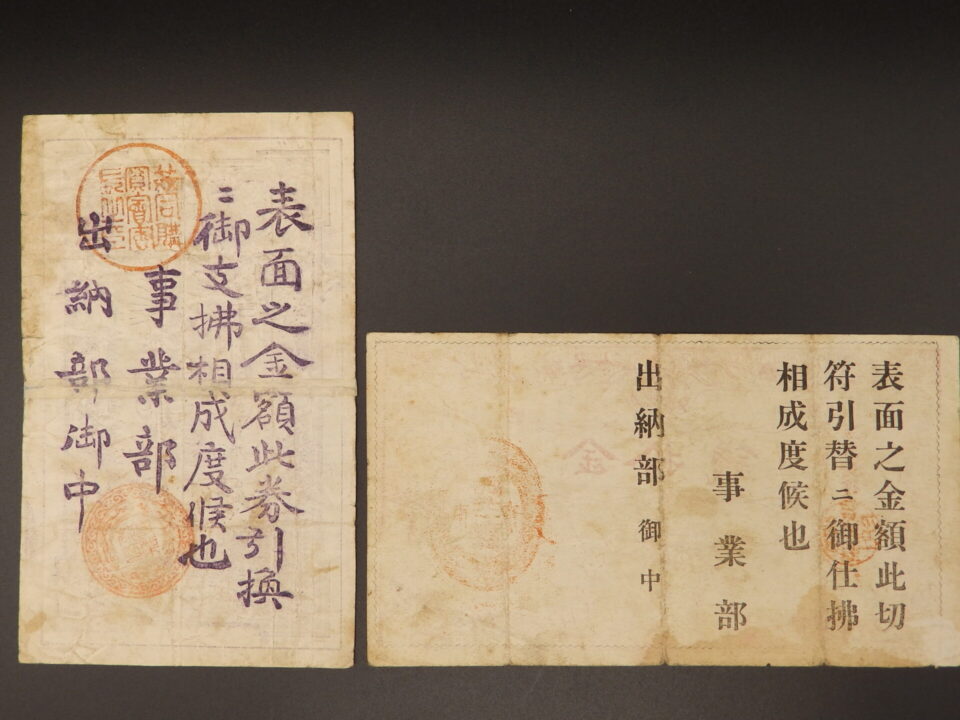 表面之金額此券引換
ニ御支拂相成度候也
事業部
出納部御中
表面之金額此切
符引替ニ御仕拂
相成度候也
事業部
出納部御中